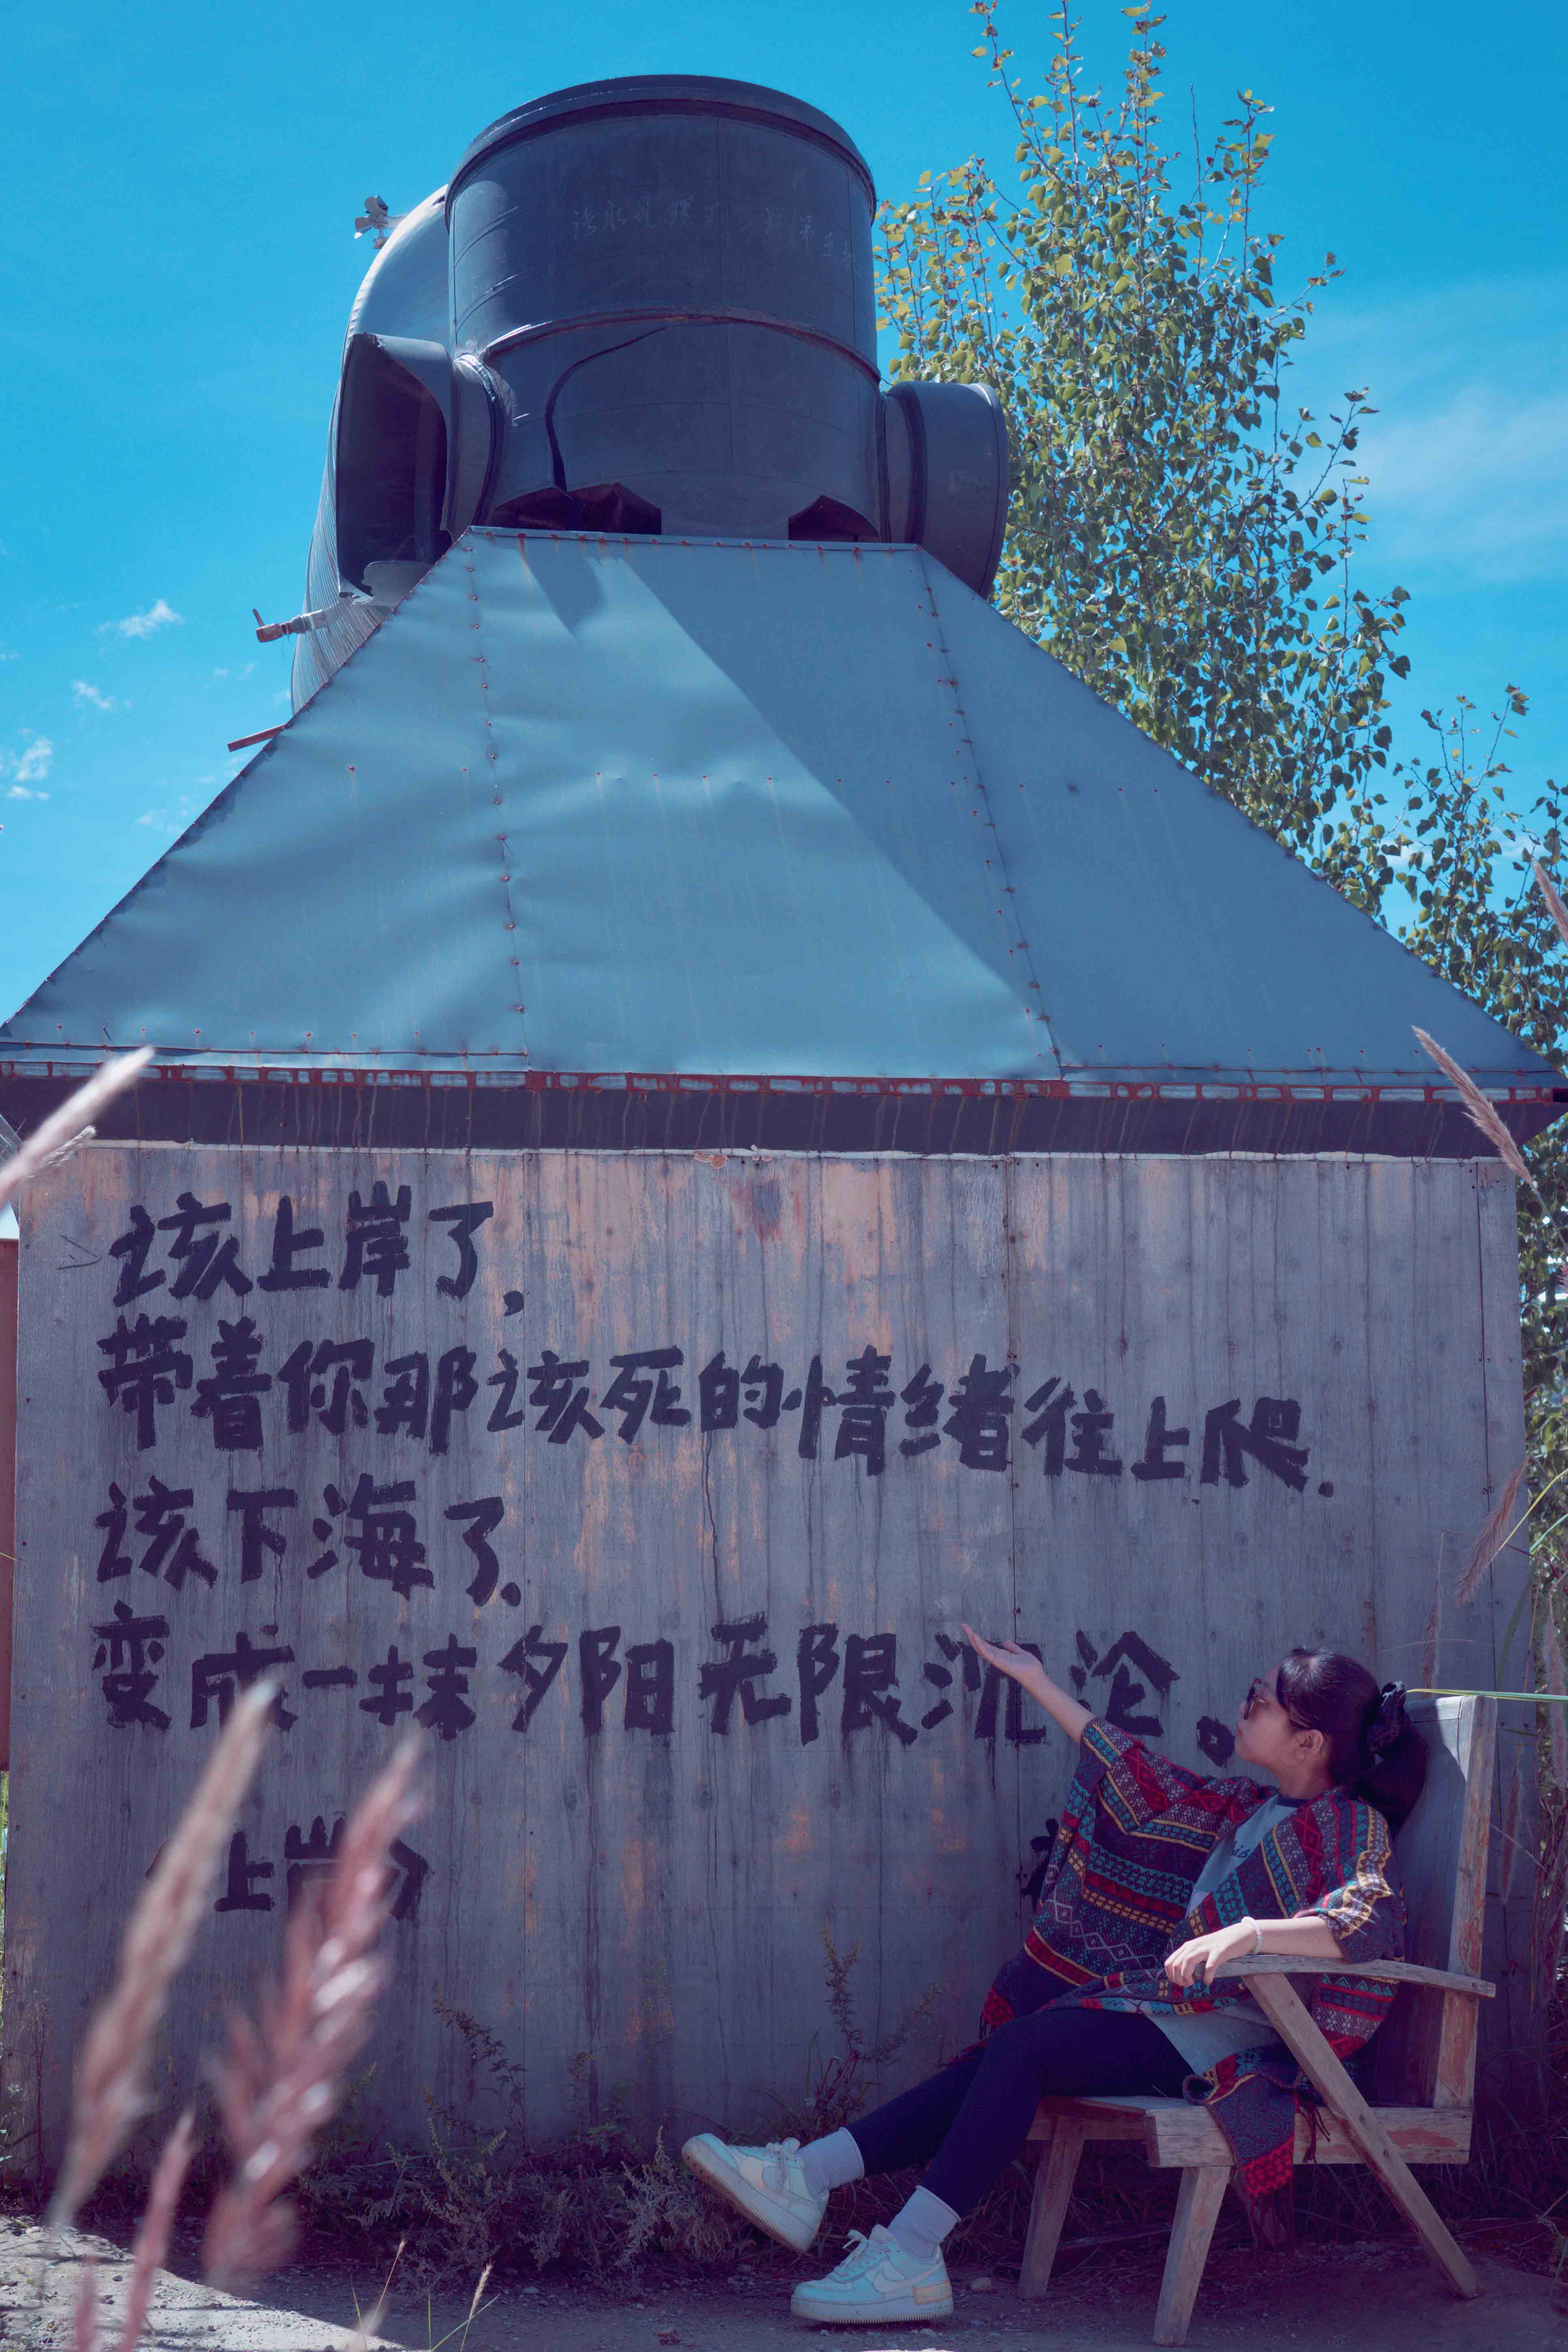 该上岸了,
带着你那该死的情绪往上爬.
该下海了.
变成一抹夕阳无限沉沦。
上岸